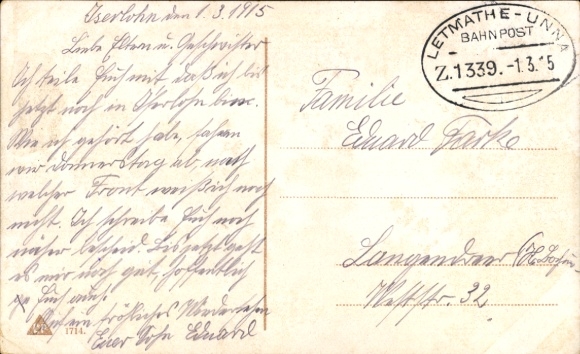 Iserlohn den 1.3.1915
Liebe Eltern u. Geschwister
Ich teile Euch mit daß ich bis
jetzt noch in Iserlohn bin.
Wie ich gehört habe, fahren
wir Donnerstag ab, nach
welcher Front weiß ich noch
nicht. Ich schreibe Euch noch
näher bescheid. Bis jetzt geht
es mir noch gut, hoffentlich
Euch auch.
Auf ein fröhliches Wiedersehen
Euer Sohn Eduard
1714.
LETMATHE-UNNA
BAHNPOST
Z.1339. -1.3.15
Familie
Eduard Farke
Langendreer
Weststr. 32